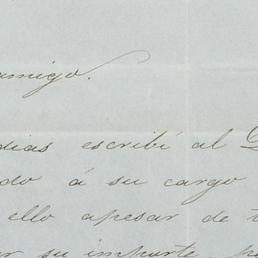 amigo.
dias escribí al
do á su cargo
ello apesar de
su importe